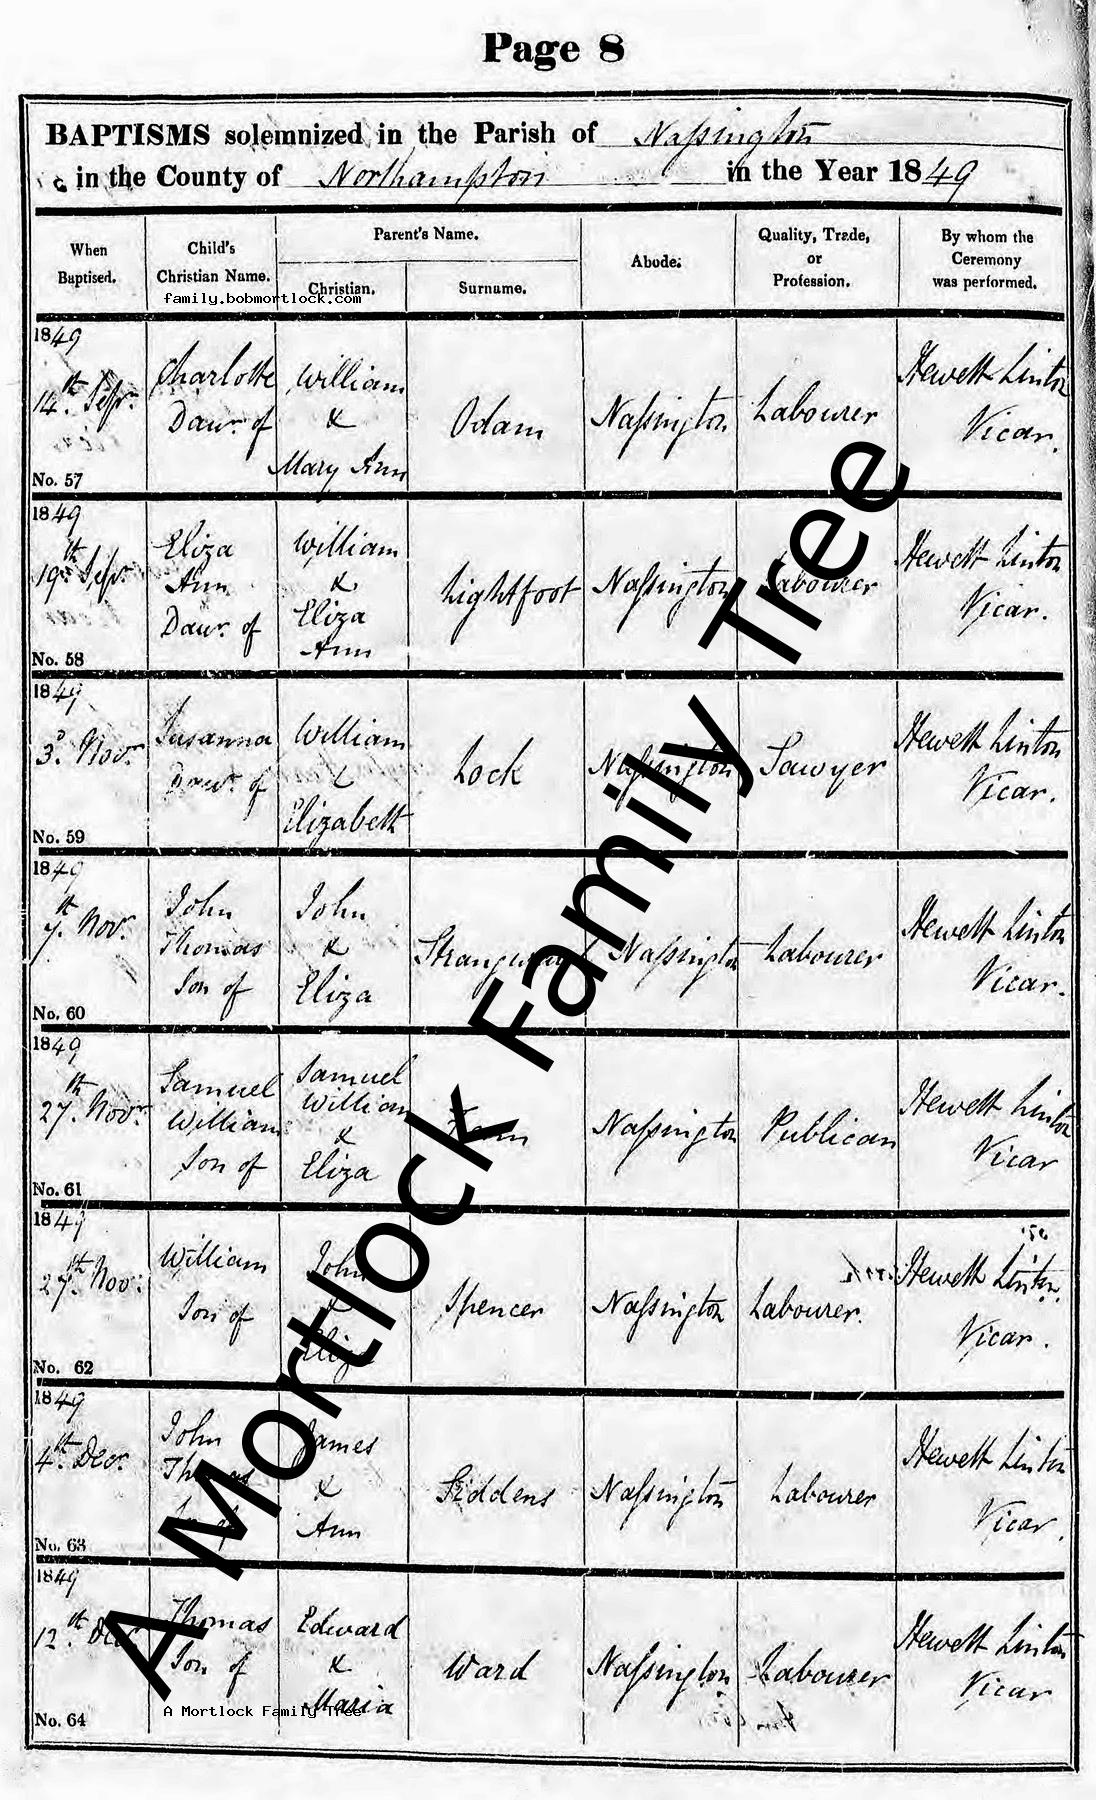 Page 8
BAPTISMS solemnized in the Parish of Naſsington
in the County of Northampton in the Year 1849
When Baptised.
Child's Christian Name.
Parent's Name.
Christian.
Surname.
Abode.
Quality, Trade, or Profession.
By whom the Ceremony was performed.
family.bobmortlock.com
1849
14th Sepr.
No. 57
Charlotte
Daur. of
William
&
Mary Ann
Odam
Naſsington
Labourer
Hewett Linton
Vicar.
1849
19th Sepr.
No. 58
Eliza
Ann
Daur. of
William
&
Eliza
Ann
Lightfoot
Naſsington
Labourer
Hewett Linton
Vicar.
1849
3d. Novr.
No. 59
Susanna
Daur. of
William
&
Elizabeth
Lock
Naſsington
Sawyer
Hewett Linton
Vicar.
1849
7th. Novr.
No. 60
John
Thomas
Son of
John
&
Eliza
Naſsington
Labourer
Hewett Linton
Vicar.
1849
27th. Novr.
No. 61
Samuel
William
Son of
Samuel
William
&
Eliza
Naſsington
Publican
Hewett Linton
Vicar
1849
27th. Novr.
No. 62
William
Son of
John
&
Eliza
Spencer
Naſsington
Labourer.
Hewett Linton.
Vicar.
1849
4th. Decr.
No. 63
John
Thomas
Son of
James
&
Ann
Siddens
Naſsington
Labourer
Hewett Linton
Vicar.
1849
12th. Decr.
No. 64
Thomas
Son of
Edward
&
Maria
Ward
Naſsington
Labourer
Hewett Linton
Vicar
A Mortlock Family Tree
A Mortlock Family Tree